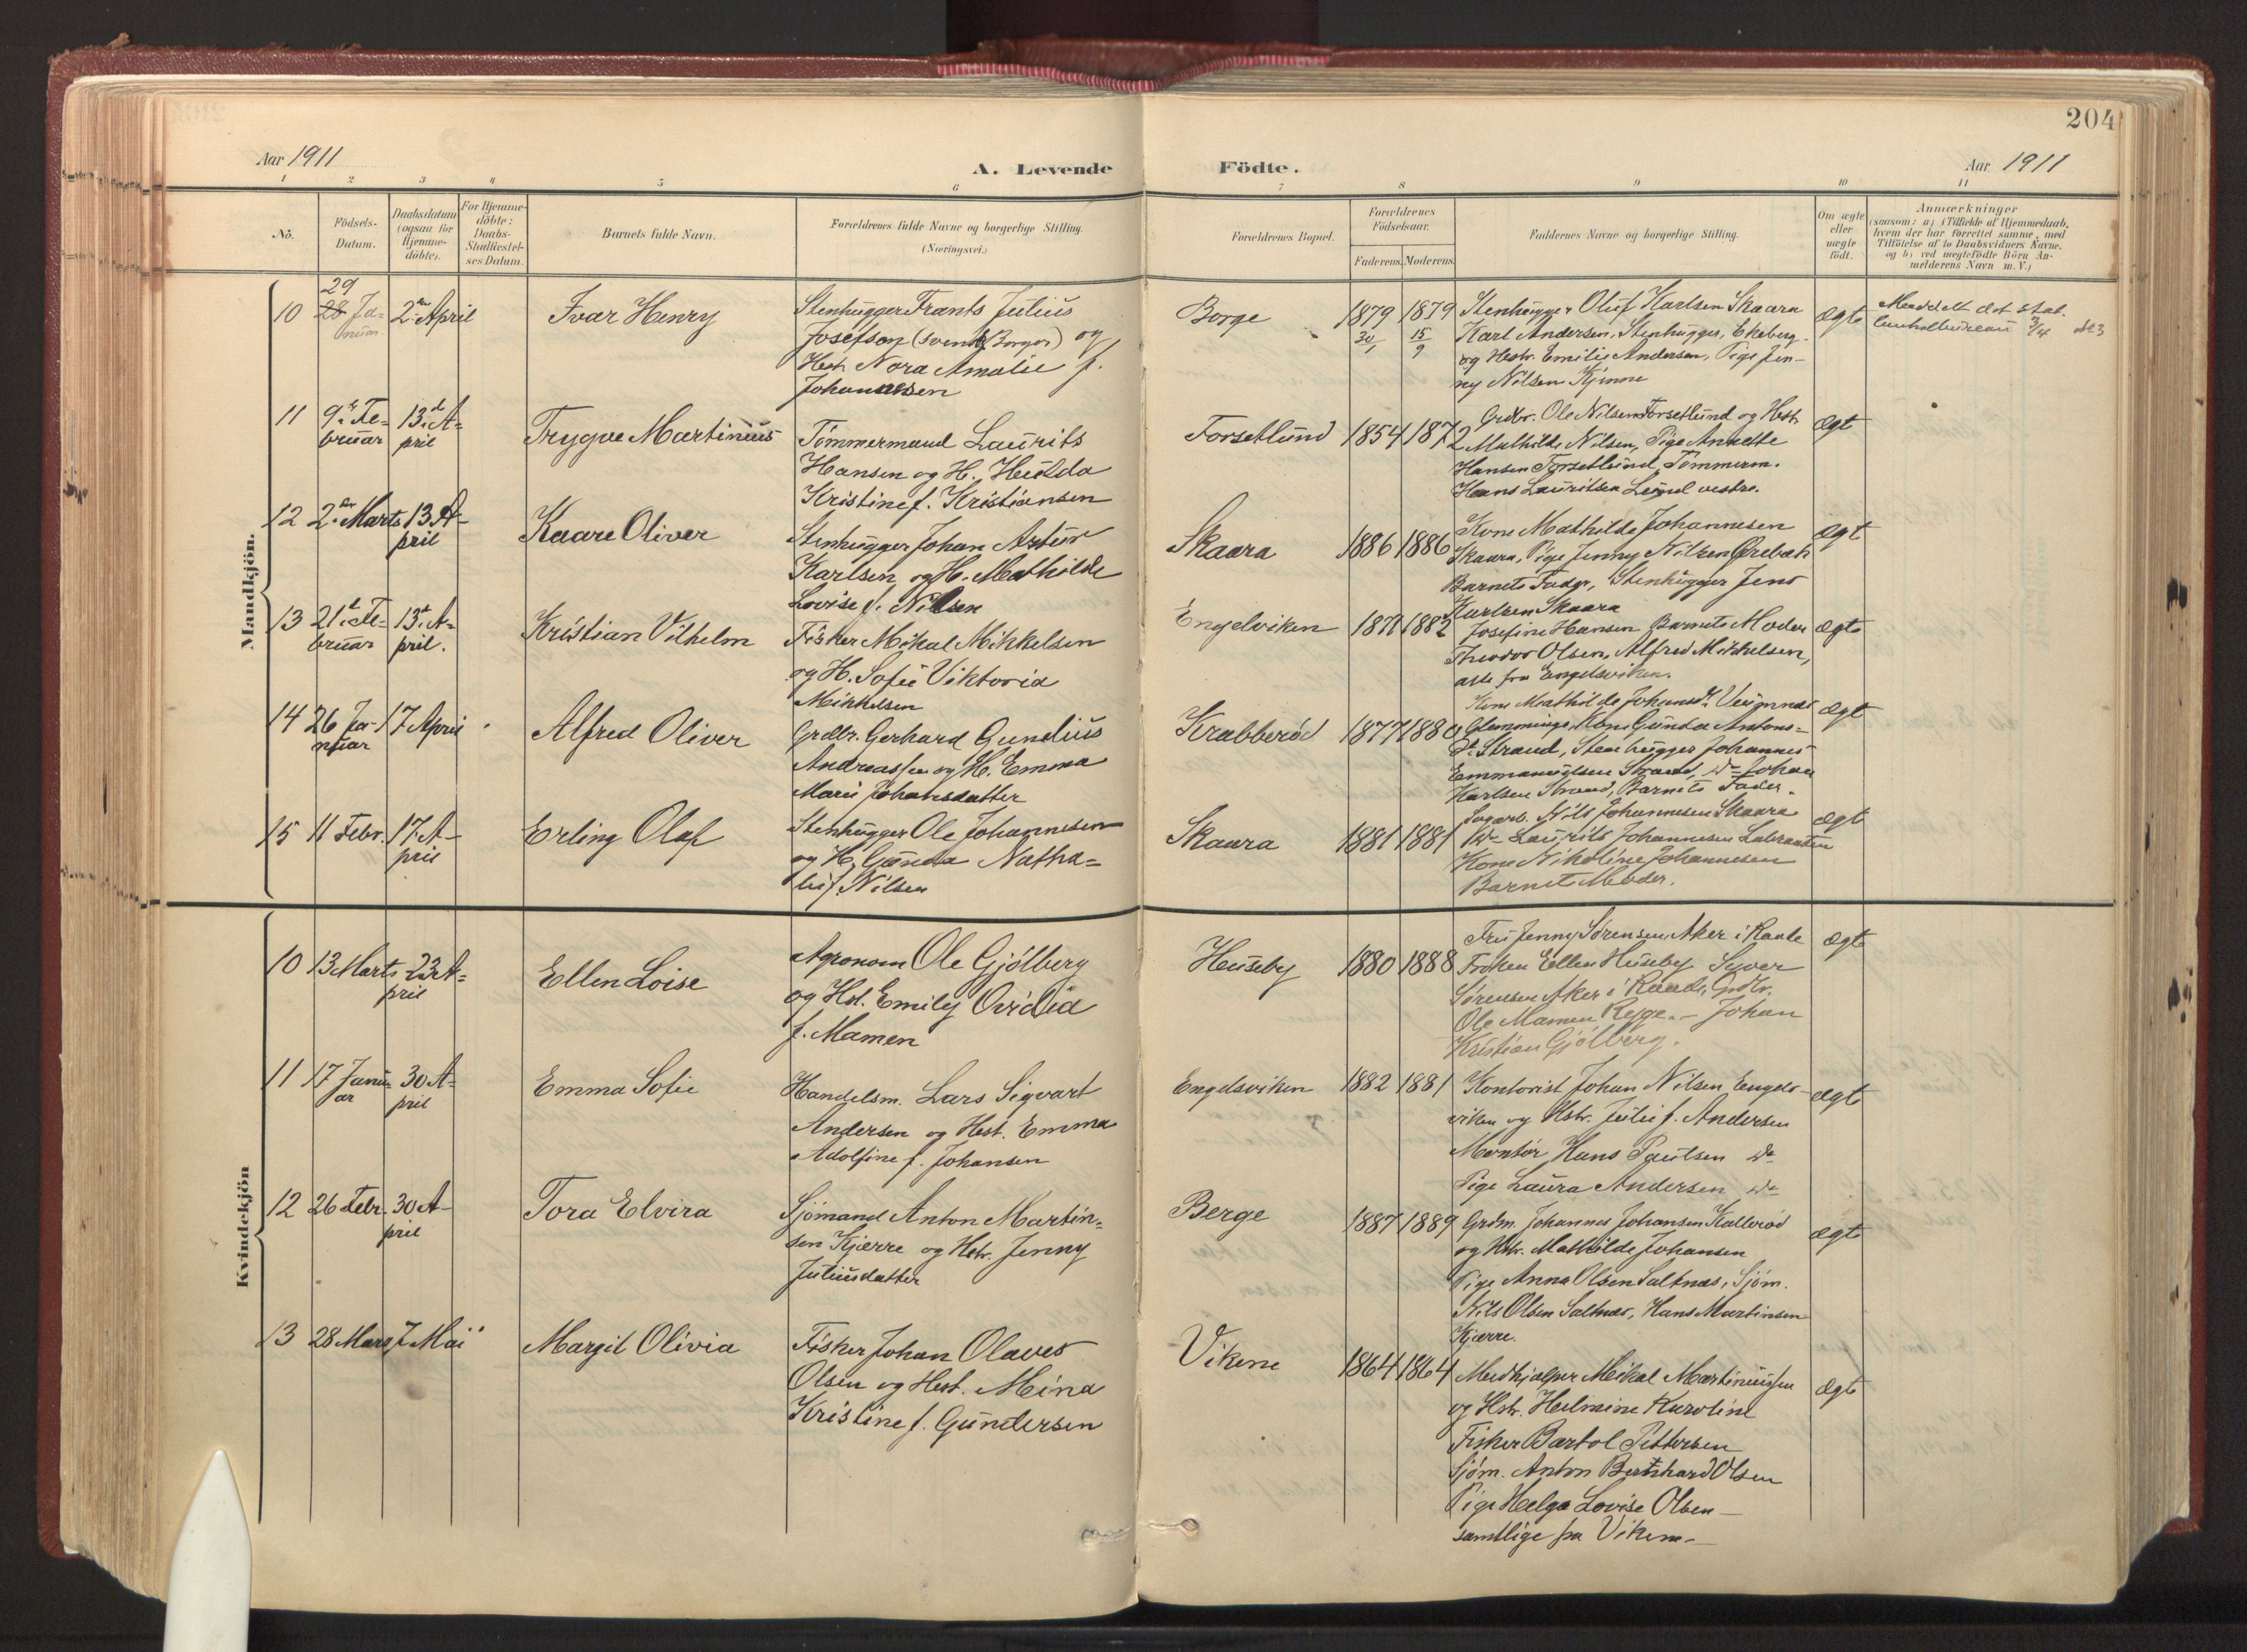 204
Aar 1911
A. Levende
Födte.
Aar 1911
1 2 3 4 5 6 7 8 9 10 11
No.
Födsels-
Datum.
Daabsdatum
(ogsaa for
Hjemme-
döbte).
For Hjemme-
döbte:
Daabs-
Stadfæstel-
ses Datum.
Barnets fulde Navn.
Forældrenes fulde Navne og borgerlige Stilling.
(Næringsvei.)
Forældrenes Bopæl.
Forældrenes
Födselsaar.
Faderens. Moderens.
Faddernes Navne og borgerlige Stilling.
Om ægte
eller
uægte
födt.
Anmærkninger
(saasom: a) i Tilfælde af Hjemmedaab,
hvem der har forrettet samme, med
Tilföielse af to Daabsvidners Navne.
og b) ved uægtefödte Börn An-
melderens Navn m. V.)
Mandkjön.
10
29
28 Ja-
nuar
2den April
Ivar Henry
Stenhugger Frants Julius
Josefson (svensk Borger) og
Hustr Nora Amalie f.
Johannesen
Borge
1879 1879
30/1 15/9
Stenhugger Oluf Karlsen Skaara
Karl Andersen, Stenhugger, Ekeberg
og Hustr. Emilie Andersen, Pige Jen-
ny Nilsen Kjinne
Ægte
Meddelt det stat.
11
9de Fe-
bruar
13de A-
pril
Trygve Martinius
Tømmermand Laurits
Hansen og H. Hulda
Kristine f. Kristiansen
Forsetlund
1854 1872
Grdbr. Ole Nilsen Forsetlund og Hustr.
Mathilde Nilsen, Pige Annette
Hansen Forsetlund, Tømmerm.
Hans Lauritsen Lund vestre.
Ægt
12
2den Marts
13 A-
pril
Kaare Oliver
Stenhugger Johan Artur
Karlsen og H. Mathilde
Lovise f. Nilsen
Skaara
1886 1886
Kone Mathilde Johannesen
Skaara, Pige Jenny Nilsen Ørebæk
Barnets Fader, Stenhugger Jens
Karlsen Skaara
Ægt
13
21de Fe-
bruar
13de A-
pril.
Kristian Vilhelm
Fisker Mikal Mikkelsen
og H. Sofie Viktoria
Mikkelsen
Engelsviken
1877 1882
Josefine Hansen Barnets Moder
Theodor Olsen, Alfred Mikkelsen,
alle fra Engelsviken.
Ægte
14
26 Ja-
nuar
17 April
Alfred Oliver
Grdbr. Gerhard Gundius
Andreassen og H. Emma
Marie Johansdatter
Krabberød
1877 1880
Kone Mathilde Johansdr.
Glemminge, Kone Gunda Antons-
dr. Strand, Stenhugger Johannes
Emmanuelsen Strand, do Johan
Karlsen Strand, Barnets Fader.
Ægt
15
11 Febr.
17. A-
pril
Erling Olaf
Stenhugger Ole Johannesen
og H. Gunda Natha-
lie f. Nilsen
Skaara
1881 1881
Sagarb. Nils Johannesen Skaara
do Laurits Johannesen
Kone Nikoline Johannesen
Barnets Moder.
Ægt
Kvindekjön
10
13 Marts
23 A-
pril
Ellen Loise
Agronom Ole Gjølberg
og Hst. Emily Ovidia
f. Mamen
Huseby
1880 1888
Fru Jenny Sørensen, Aker i Raade
Frøken Ellen Huseby Syver
Sørensen Aker i Raade, Grdbr.
Ole Mamen Rygge. – Johan
Kristian Gjølberg.
Ægte
11
17 Janu-
ar
30 A-
pril
Emma Sofie
Handelsm. Lars Sigvart
Andersen og Hust. Emma
Adolfine f. Johansen
Engelsviken
1882 1881
Kontorist Johan Nilsen Engels-
viken og Hstr. Julie f. Andersen
Montør Hans Paulsen do
Pige Laura Andersen do
Ægte
12
26 Febr.
30 A-
pril
Tora Elvira
Sjømand Anton Martin-
sen Kjærre og Hstr. Jenny
Juliusdatter
Berge
1887 1889
Grdm. Johannes Johansen Kallerød
og Hstr. Mathilde Johansen
Pige Anna Olsen Saltnæs, Sjøm.
Nils Olsen Saltnæs, Hans Martinsen
Kjærre.
Ægte
13
28 Mars
7 Mai
Margit Olivia
Fisker Johan Olaves
Olsen og Hust. Mina
Kristine f. Gundersen
Vikene
1864 1864
Medhjælper Mikal Martiniussen
og Hstr. Helmine Karoline
Fisker Bartol Pettersen
Sjøm. Anton Bernhard Olsen
Pige Helga Lovise Olsen –
samtlige fra Viken –
Ægte